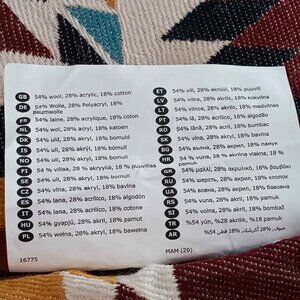 GB 54% wool, 28% acrylic, 18% cotton
DE 54% Wolle, 28% Polyacryl, 18%
Baumwolle
FR 54% laine, 28% acrylique, 18% coton
NL 54% wol, 28% acryl, 18% katoen
DK 54% uld, 28% akryl, 18% bomuld
IS 54% ull, 28% akrýl, 18% bómull
NO 54% ull, 28% akryl, 18% bomull
FI 54% villaa, 28% akryyliä, 18% puuvillaa
SE 54% ull, 28% akryl, 18% bomull
CZ 54% vlna, 28% akryl, 18% bavlna
ES 54% lana, 28% acrílico, 18% algodón
IT 54% lana, 28% acrilico, 18% cotone
HU 54% gyapjú, 28% akril, 18% pamut
PL 54% wełna, 28% akryl, 18% bawełna
16775
ET 54% vill, 28% akrüül, 18% puuvill
LV 54% vilna, 28% akrils, 18% kokvilna
LT 54% vilnos, 28% akrilo, 18% medvilnės
PT 54% lã, 28% acrílico, 18% algodão
RO 54% lână, 28% acril, 18% bumbac
SK 54% vlna, 28% akryl, 18% bavlna
BG 54% вълна, 28% акрил, 18% памук
HR 54% vuna, 28% akrilna vlakna, 18%
pamuk
GR 54% μαλλί, 28% ακρυλικό, 18% βαμβάκι
RU 54% шерсть, 28% акрил, 18% хлопок
UA 54% вовна, 28% акрил, 18% бавовна
RS 54% vuna, 28% akril, 18% pamuk
SI 54% volna, 28% akril, 18% bombaž
TR %54 yün, %28 akrilik, %18 pamuk
AR 54% صوف، 28% أكريليك، 18% قطن
MAM (29)